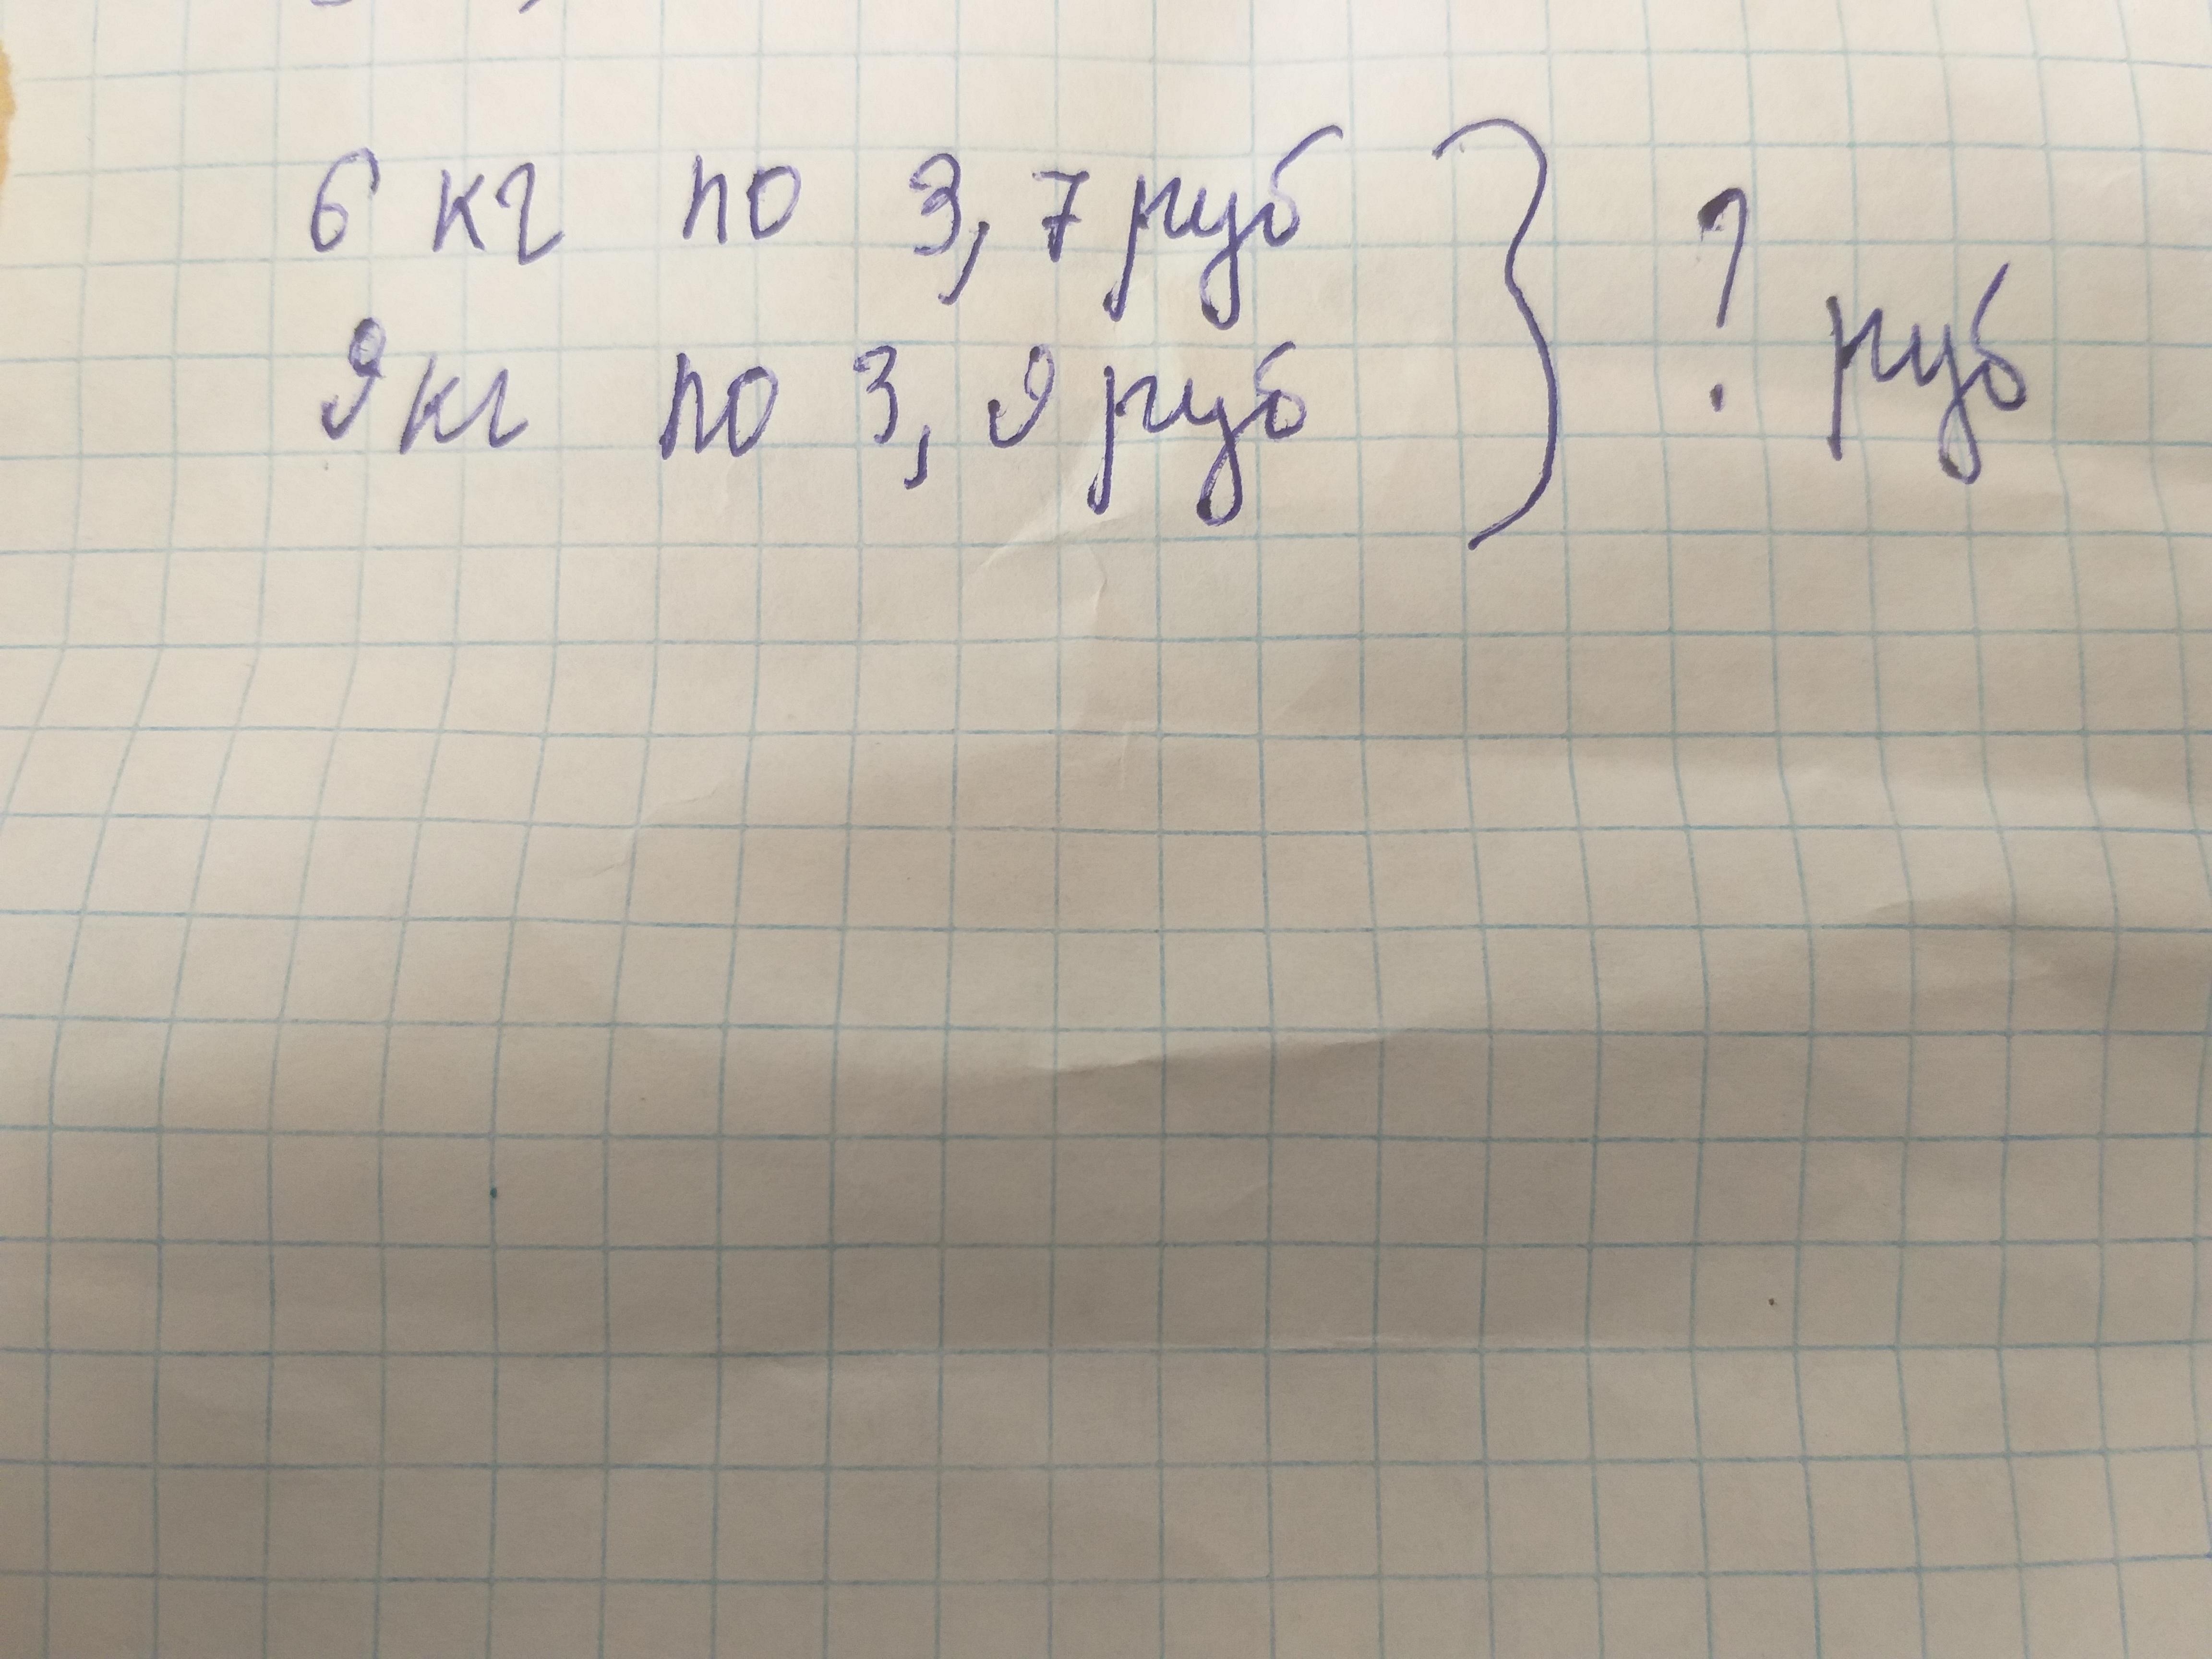 6 кг по 3,7 руб
9 кг по 3,9 руб
? руб